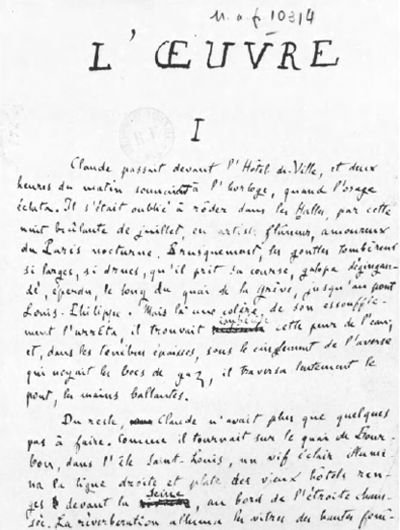 n.a.f. 10314
L'ŒUVRE
I
Claude passait devant l'Hôtel-de-Ville, et deux
heures du matin sonnaient à l'horloge, quand l'orage
éclata. Il s'était oublié à rôder dans les Halles, par cette
nuit brûlante de juillet, en artiste flâneur, amoureux
du Paris nocturne. Brusquement, les gouttes tombèrent
si larges, si drues, qu'il prit sa course, galopa dégingan-
dé, éperdu, le long du quai de la Grève, jusqu'au pont
Louis-Philippe. Mais là une colère de son essouffle-
ment l'arrêta, il trouvait imbécile cette peur de l'eau;
et, dans les ténèbres épaisses, sous le cinglement de l'averse
qui noyait les becs de gaz, il traversa lentement le
pont, les mains ballantes.
Du reste, Claude n'avait plus que quelques
pas à faire. Comme il tournait sur le quai de Bour-
bon, dans l'île Saint-Louis, un vif éclair illumi-
na la ligne droite et plate des vieux hôtels ran-
gés devant la Seine, au bord de l'étroite chaus-
sée. La réverbération alluma les vitres des hautes fenê-